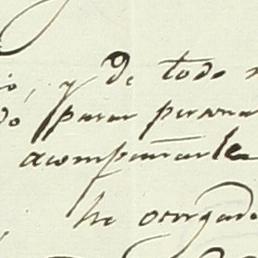 io, y de todo
do para persona
acompañarla
he otorgado